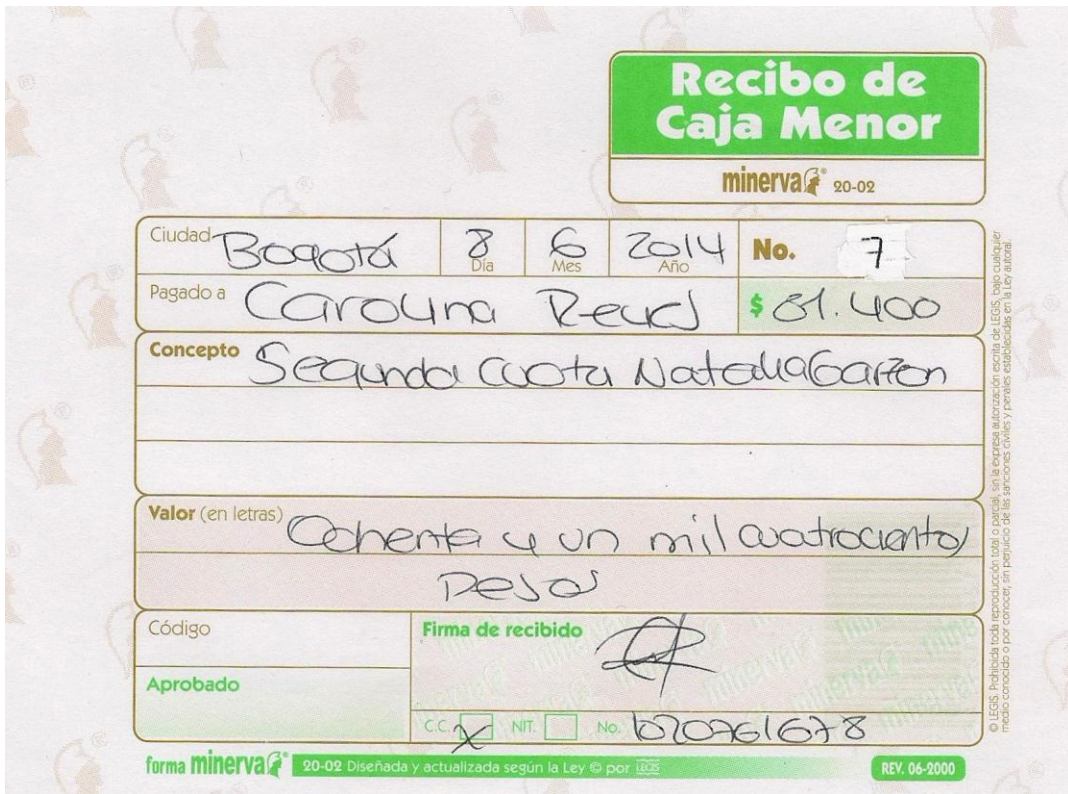 Recibo de
Caja Menor
minerva 20-02
Ciudad Bogotá 8 Día 6 Mes 2014 Año No. 7
Pagado a Carolina $ 81.400
Concepto Segunda Cuota Natalia Garzon
Valor (en letras) Ochenta y un mil cuatrocientos
Pesos
Código
Firma de recibido
Aprobado
C.C. X NIT. No. 1020761678
forma minerva 20-02 Diseñada y actualizada según la Ley © por LEGIS REV. 06-2000
© LEGIS. Prohibida toda reproducción total o parcial, sin la expresa autorización escrita de LEGIS, bajo cualquier
medio conocido o por conocer, sin perjuicio de las sanciones civiles y penales establecidas en la Ley autoral.